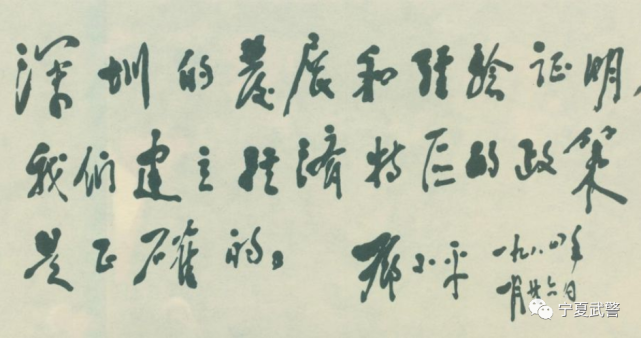 深圳的发展和经验证明，
我们建立经济特区的政策
是正确的。
邓小平 一九八四年
一月廿六日
宁夏武警